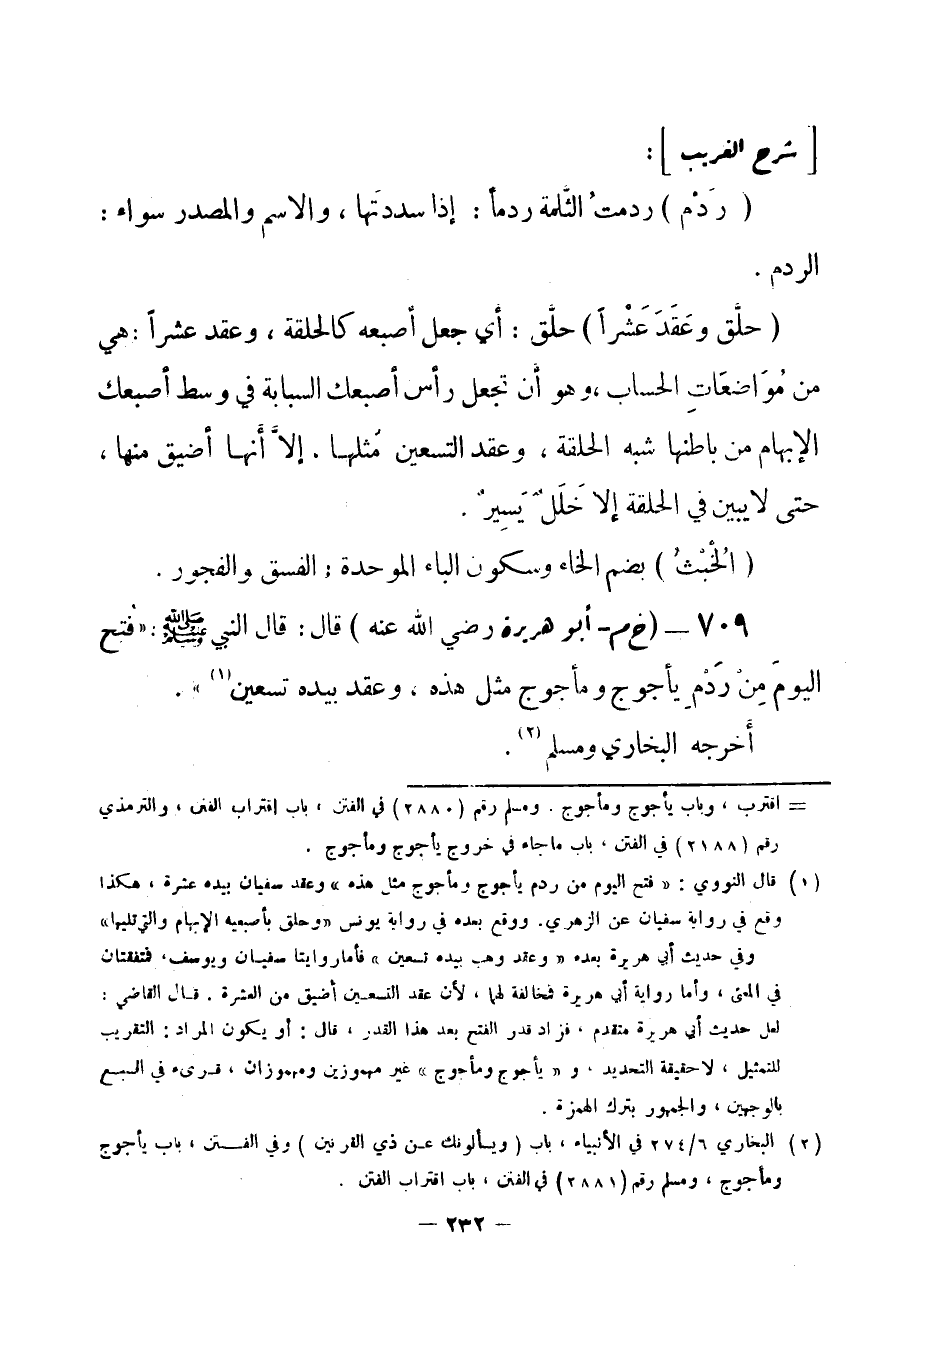 [ شرح الغريب ] :
( رَدْم ) ردمتُ الثَّلمة ردماً : إذا سددتَها ، والاسم والمصدر سواء :
الردم .
( حلَّق وعَقَدَ عَشْراً ) حلَّق : أي جعل أصبعه كالحلقة ، وعقد عشراً : هي
من مُوَاضعَاتِ الحساب ، وهو أن تجعل رأس أصبعك السبابة في وسط أصبعك
الإبهام من باطنها شبه الحلقة ، وعقد التسعين مُثلها . إلاَّ أنها أضيق منها ،
حتى لا يبين في الحلقة إلا خَلَلٌ يَسِيرٌ .
( الُخْبْثُ ) بضم الخاء وسكون الباء الموحدة : الفسق والفجور .
٧٠٩ – (خ م – أبو هريرة رضي الله عنه ) قال : قال النبي ﷺ : « فُتح
اليومَ مِنْ رَدْمِ يأجوج ومأجوج مثل هذه ، وعقد بيده تسعين(١) » .
أخرجه البخاري ومسلم(٢) .
= اقترب ، وباب يأجوج ومأجوج . ومسلم رقم (٢٨٨٠) في الفتن ، باب إقتراب الفتن ، والترمذي
رقم (٢١٨٨) في الفتن ، باب ماجاء في خروج يأجوج ومأجوج .
(١) قال النووي : « فتح اليوم من ردم يأجوج ومأجوج مثل هذه » وعقد سفيان بيده عشرة ، هكذا
وقع في رواية سفيان عن الزهري. ووقع بعده في رواية يونس «وحلق بأصبعيه الإبهام والتي تليها»
وفي حديث أبي هريرة بعده « وعقد وهب بيده تسعين » فأما روايتا سفيان ويوسف، فتفقتان
في المعنى ، وأما رواية أبي هريرة فمخالفة لهما ، لأن عقد التسعين أضيق من العشرة . قال القاضي :
لعل حديث أبي هريرة متقدم ، فزاد قدر الفتح بعد هذا القدر ، قال : أو يكون المراد : التقريب
للتمثيل ، لاحقيقة التحديد ، و « يأجوج ومأجوج » غير مهموزين ومهموزان ، قرىء في السبع
بالوجهين ، والجمهور بترك الهمزة .
(٢) البخاري ٦/٢٧٤ في الأنبياء ، باب ( ويسألونك عن ذي القرنين ) وفي الفتن ، باب يأجوج
ومأجوج ، ومسلم رقم (٢٨٨١) في الفتن ، باب اقتراب الفتن .
– ٢٣٢ –